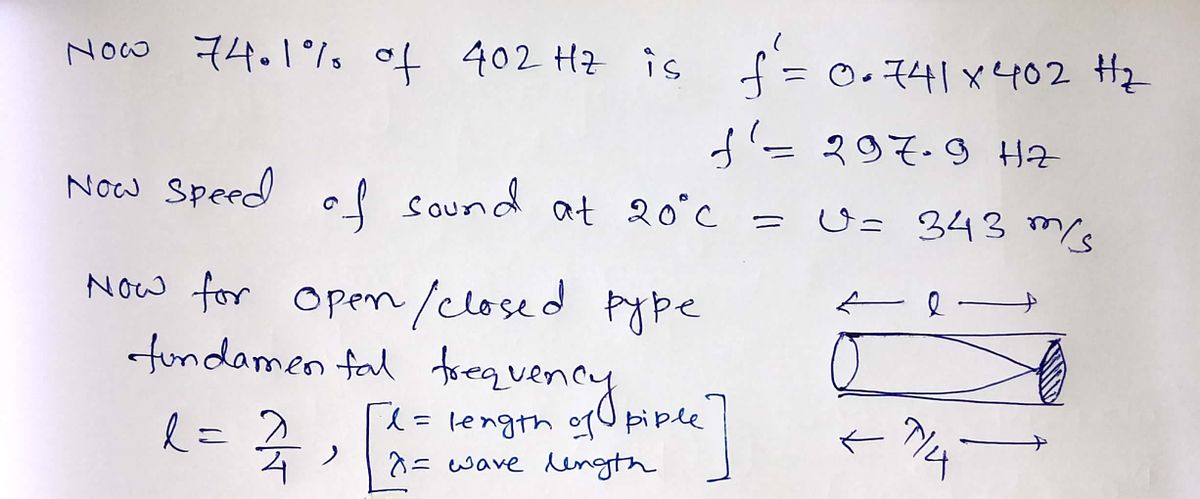 Now 74.1% of 402 Hz is f' = 0.741 x 402 Hz
f' = 297.9 Hz
Now speed of sound at 20°C = v = 343 m/s
Now for open/closed pype
fundamental frequency
l = λ/4 , [l = length of piple
λ = wave length]
← l →
← λ/4 →